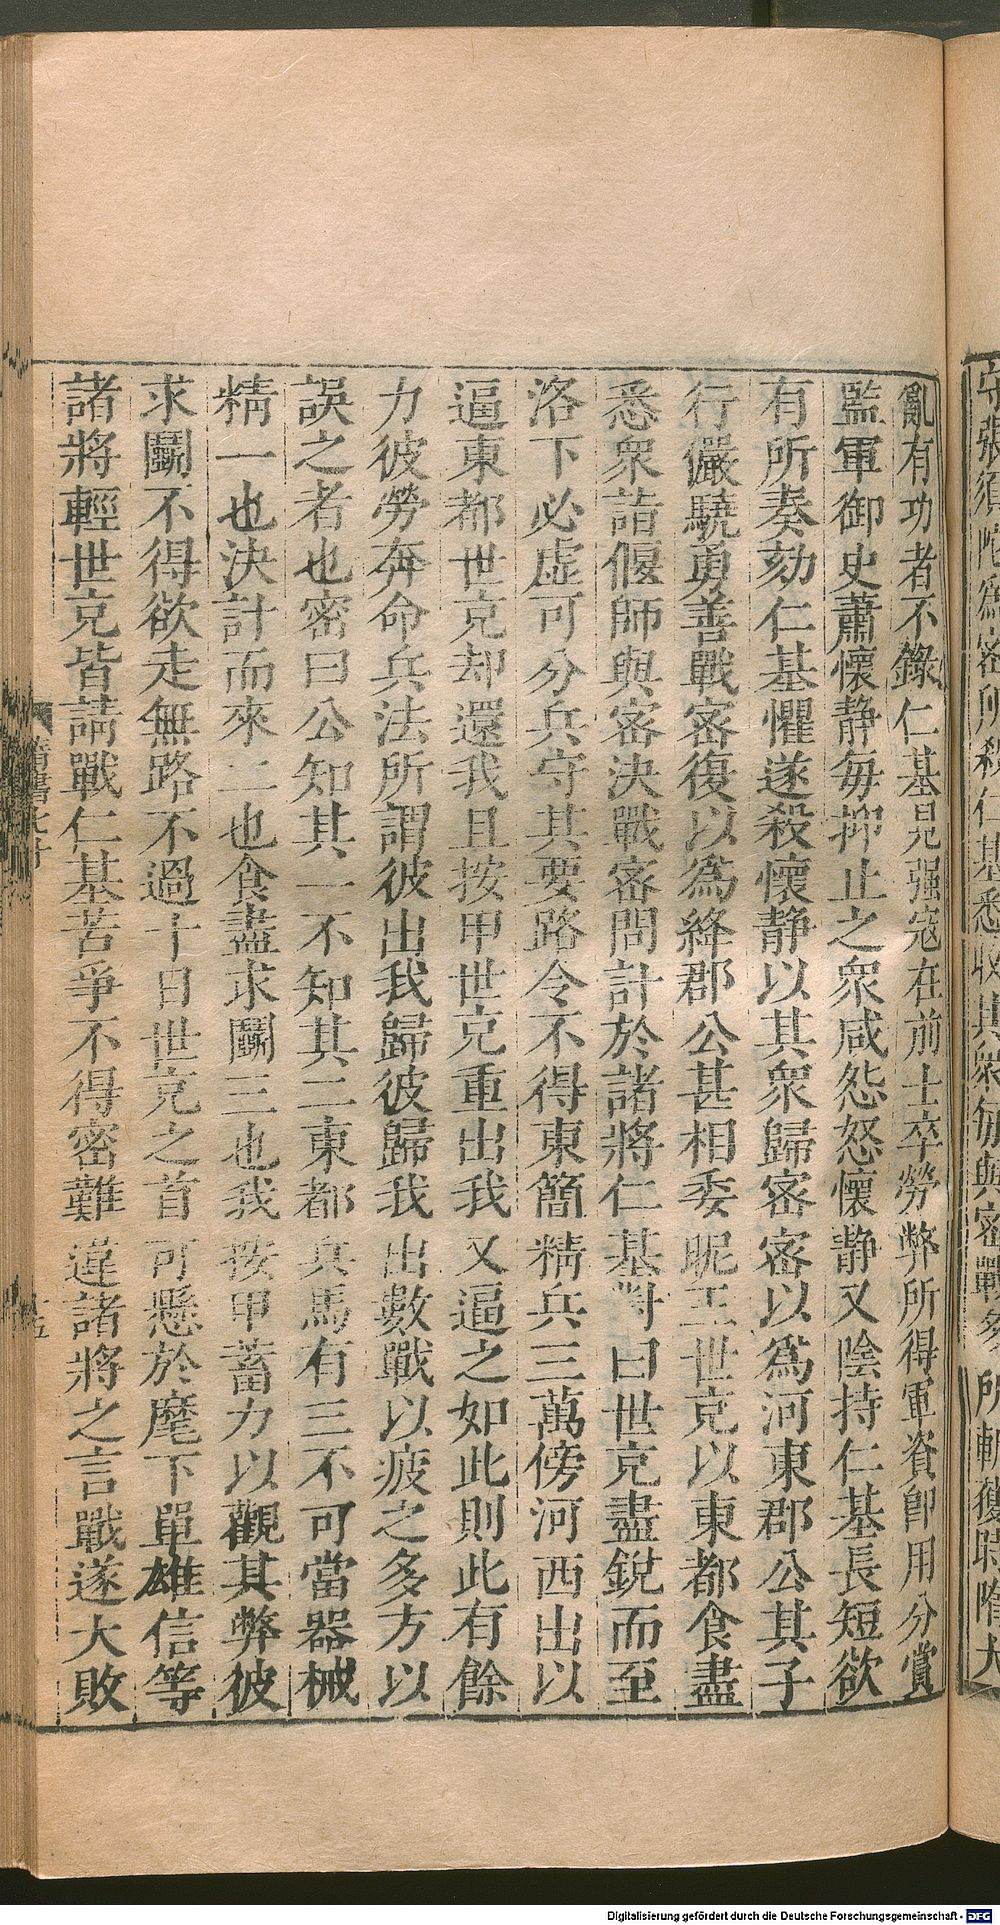 亂有功者不錄仁基見强宼在前士卒勞弊所得軍資卽用分賞
監軍御史蕭懷静毎抑止之衆咸怨怒懷静又陰持仁基長短欲
有所奏劾仁基懼遂殺懷静以其衆歸密密以爲河東郡公其子
行儼驍勇善戰密復以爲絳郡公甚相委昵王世克以東都食盡
悉衆詣偃師與密決戰密問計於諸將仁基對曰世克盡銳而至
洛下必虚可分兵守其要路令不得東簡精兵三萬傍河西出以
逼東都世克却還我且按甲世克重出我又逼之如此則此有餘
力彼勞奔命兵法所謂彼出我歸彼歸我出數戰以疲之多方以
誤之者也密曰公知其一不知其二東都兵馬有三不可當器械
精一也決計而來二也食盡求鬭三也我按甲蓄力以觀其弊彼
求鬭不得欲走無路不過十日世克之首可懸於麾下單雄信等
諸將輕世克皆請戰仁基苦爭不得密難違諸將之言戰遂大敗
隋書七十
十五
Digitalisierung gefördert durch die Deutsche Forschungsgemeinschaft - DFG